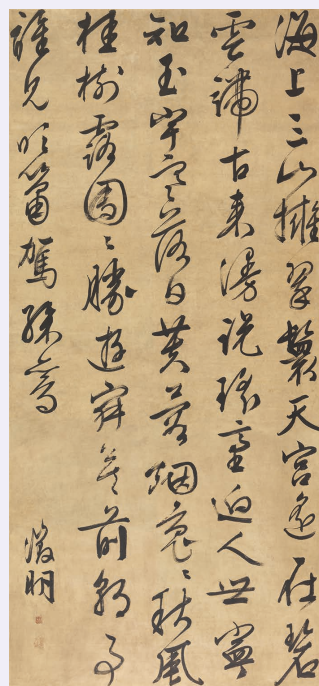 海上三山擁翠鬟天宮遙在碧
雲端古來漫說瑤臺迥人世寧
知玉宇寒落日芙蓉烟裊〻秋風
桂樹露團〻勝遊寂寞前朝事
誰見吹簫駕綵鸞
徵明